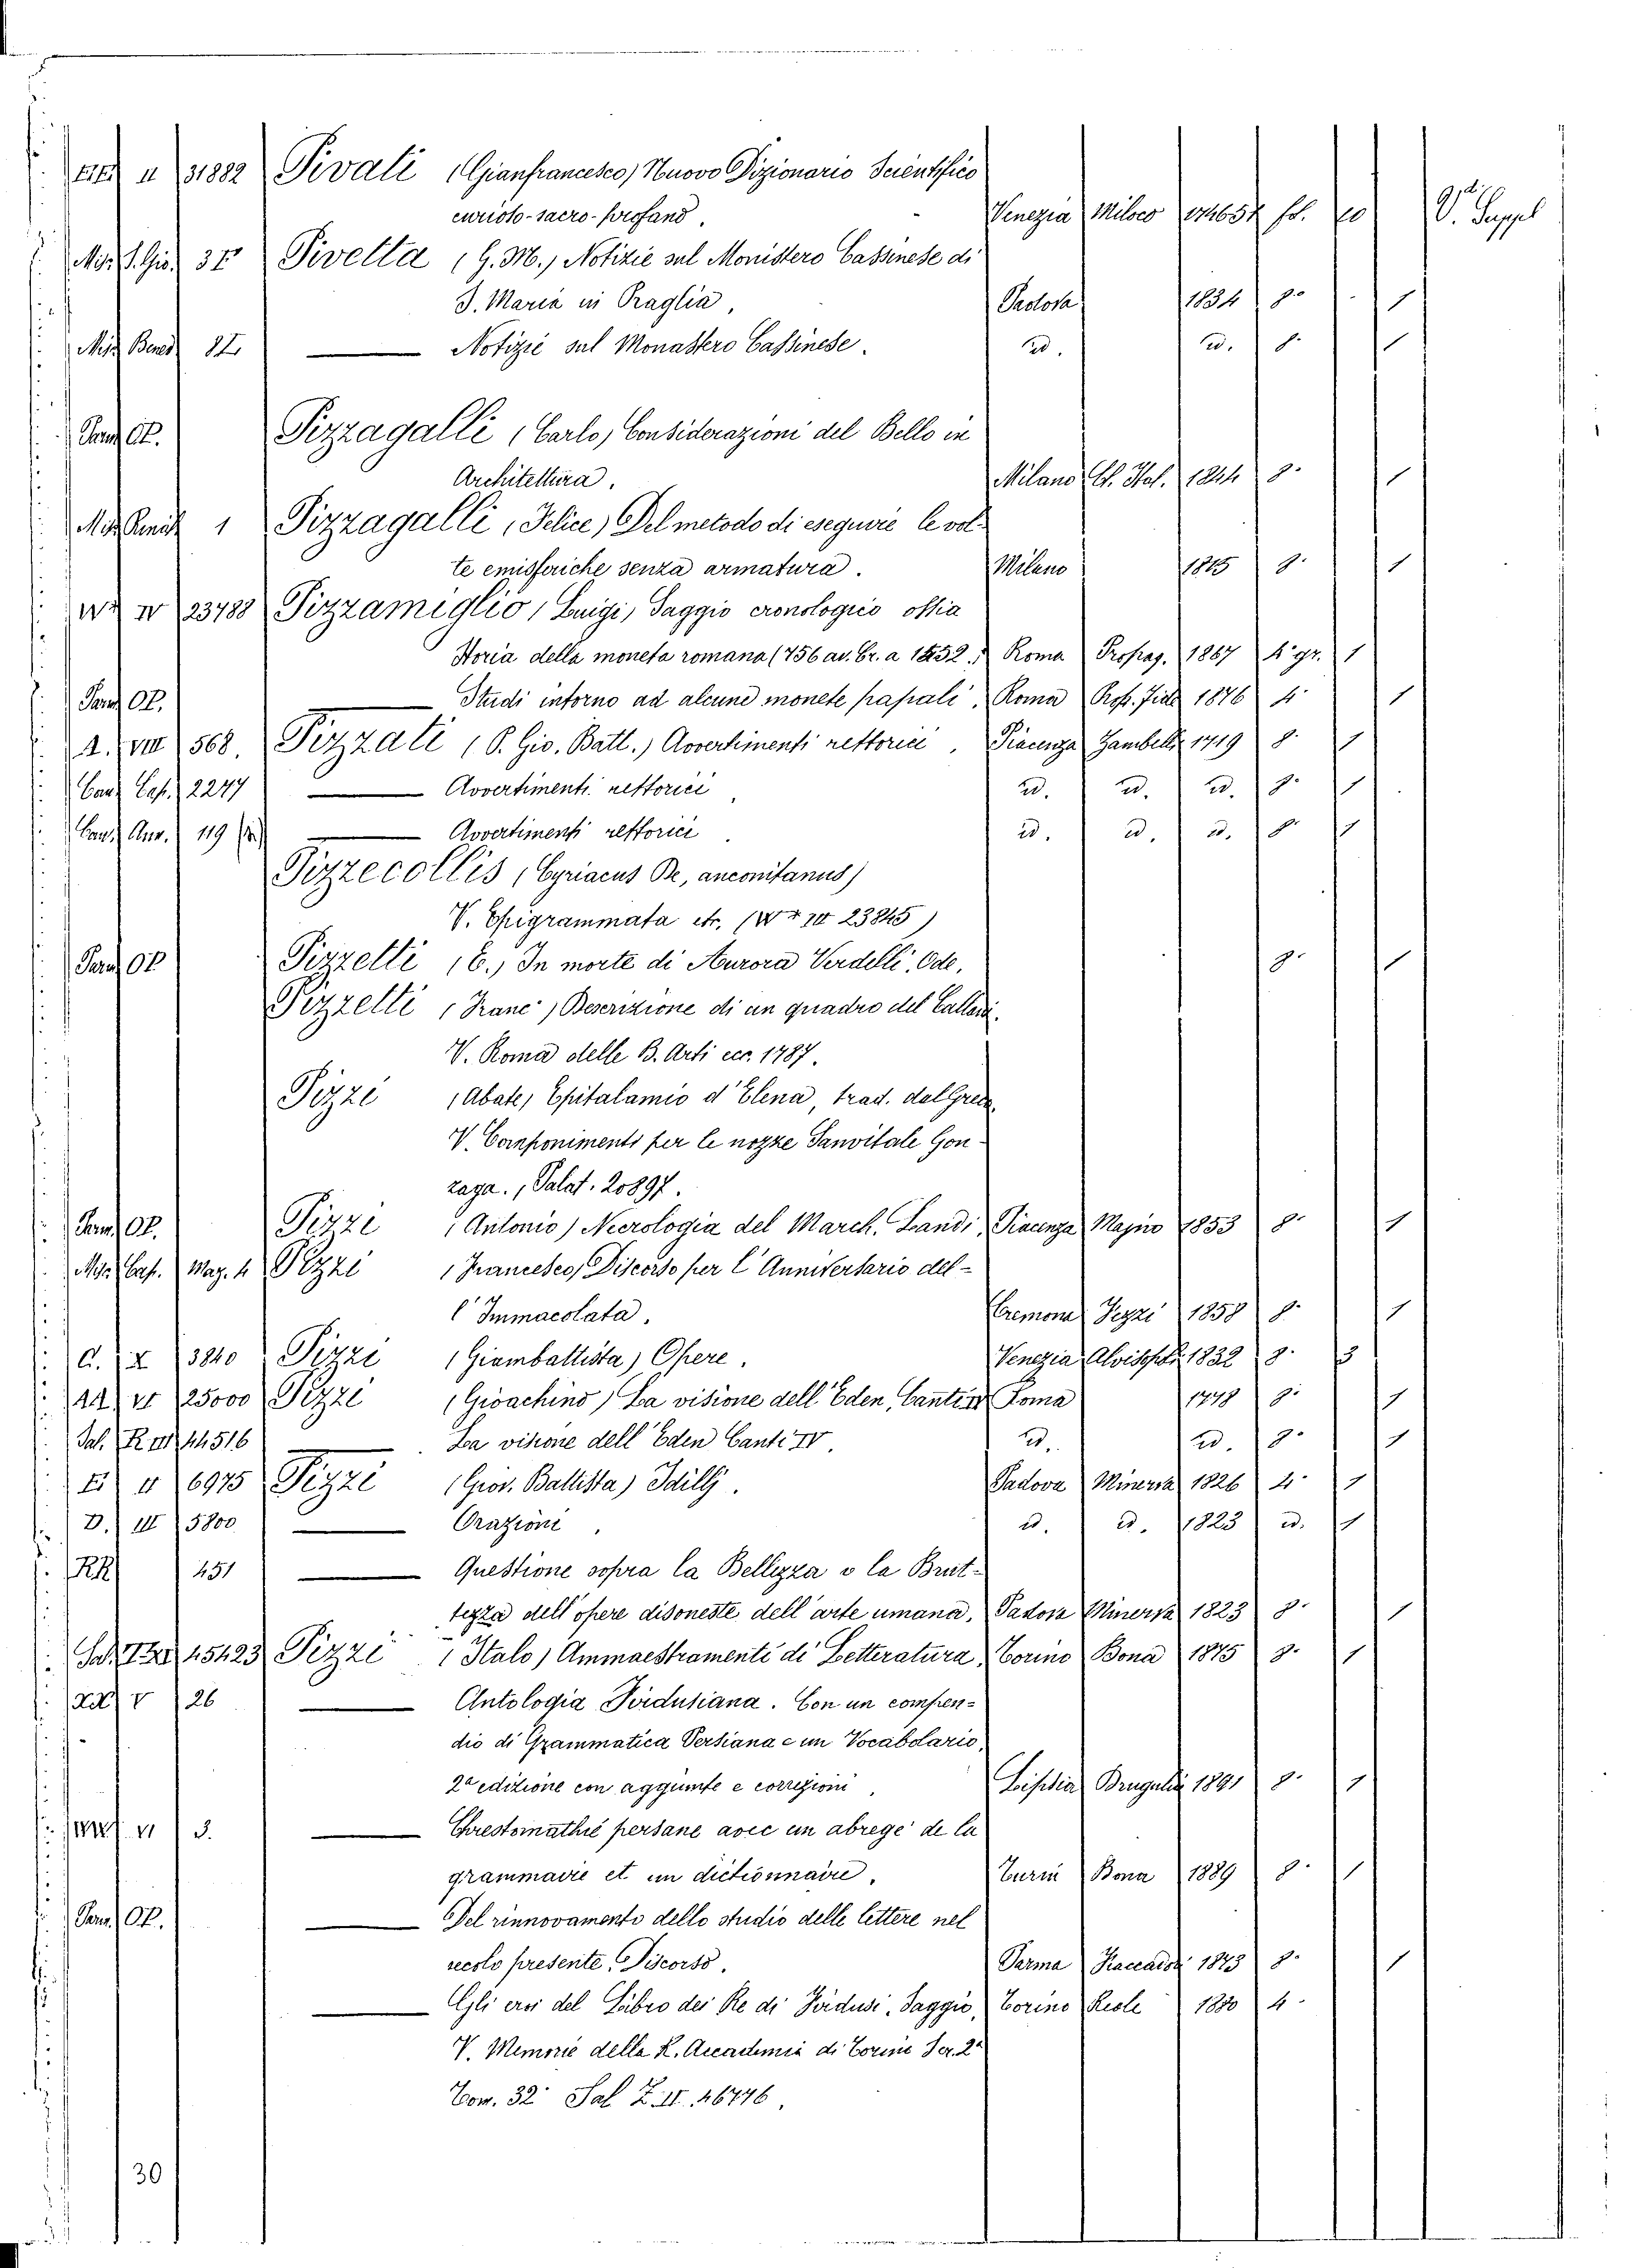 II 31882 Pivati (Gianfrancesco) Nuovo Dizionario Scientifico
curioso-sacro-profano. Venezia Miloco fol. 10 V. Suppl
Misc. S. Gio. 31 Pivetta (G. M.) Notizie sul Monistero Cassinese di
S. Maria in Praglia, Padova 1834 8° 1
Misc. Bened. 82 — Notizie sul Monastero Cassinese. id. id. 8° 1
Parm. Op. Pizzagalli (Carlo) Considerazioni del Bello in
Architettura. Milano Tip. Ital. 1844 8° 1
Misc. 1 Pizzagalli (Felice) Del metodo di eseguire le vol-
te emisferiche senza armatura. Milano 1815 8° 1
W* IV 23788 Pizzamiglio (Luigi) Saggio cronologico ossia
Storia della moneta romana (756 av. Cr. a 1452.) Roma Propag. 1867 4° gr. 1
Parm. Op. — Studi intorno ad alcune monete papali, Roma Prop. Fide 1876 4° 1
A. VIII 568 Pizzati (P. Gio. Batt.) Avvertimenti rettorici, Piacenza Zambelli 1719 8° 1
Can. Cap. 2247 — Avvertimenti rettorici id. id. id. 8° 1
Can. Ann. 119 — Avvertimenti rettorici id. id. id. 8° 1
Pizzecollis (Cyriacus De, anconitanus)
V. Epigrammata etc. (W* III 23845)
Parm. Op Pizzetti (C.) In morte di Aurora Verdelli, Ode, 8° 1
Pizzetti (Franc°) Descrizione di un quadro del Callani.
V. Roma delle B. Arti ecc. 1787.
Pizzi (Abate) Epitalamio d'Elena, trad. dal Greco,
V. Componimenti per le nozze Sanvitale Gon-
zaga., Palat. 20897.
Parm. Op. Pizzi (Antonio) Necrologia del March. Landi, Piacenza Majno 1853 8° 1
Misc. Cap. Mag. 4 Pizzi (Francesco) Discorso per l'Anniversario del-
l'Immacolata, Cremona Pezzi 1858 8° 1
C. X 3840 Pizzi (Giambattista) Opere. Venezia Alvisop. 1832 8° 3
AA) VI 25000 Pizzi (Gioachino) La visione dell'Eden, Canti IV Roma 1778 8° 1
Sal. R III 44516 — La visione dell'Eden Canti IV. id. id. 8° 1
E) II 6975 Pizzi (Giov. Battista) Idillj. Padova Minerva 1826 4° 1
D.) III 5800 — Orazioni, id. id. 1823 id. 1
RR) 451 — Questione sopra la Bellezza o la Brut-
tezza dell'opere disoneste dell'arte umana, Padova Minerva 1823 8° 1
Sal. 45423 Pizzi (Italo) Ammaestramenti di Letteratura, Torino Bona 1875 8° 1
V 26 — Antologia Firdusiana. Con un compen-
dio di Grammatica Persiana e un Vocabolario,
2ª edizione con aggiunte e correzioni, Lipsia Drugulin 1891 8° 1
VI 3. — Chrestomathie persane avec un abregé de la
grammaire et un dictionnaire, Turin Bona 1889 8° 1
Parm. Op. — Del rinnovamento dello studio delle lettere nel
secolo presente, Discorso, Parma Fiaccadori 1873 8° 1
— Gli eroi del Libro dei Re di Firdusi, Saggio, Torino Reale 1880 4°
V. Memorie della R. Accademia di Torino Ser. 2ª
Tom. 32° Sal Z. II. 46776.
30